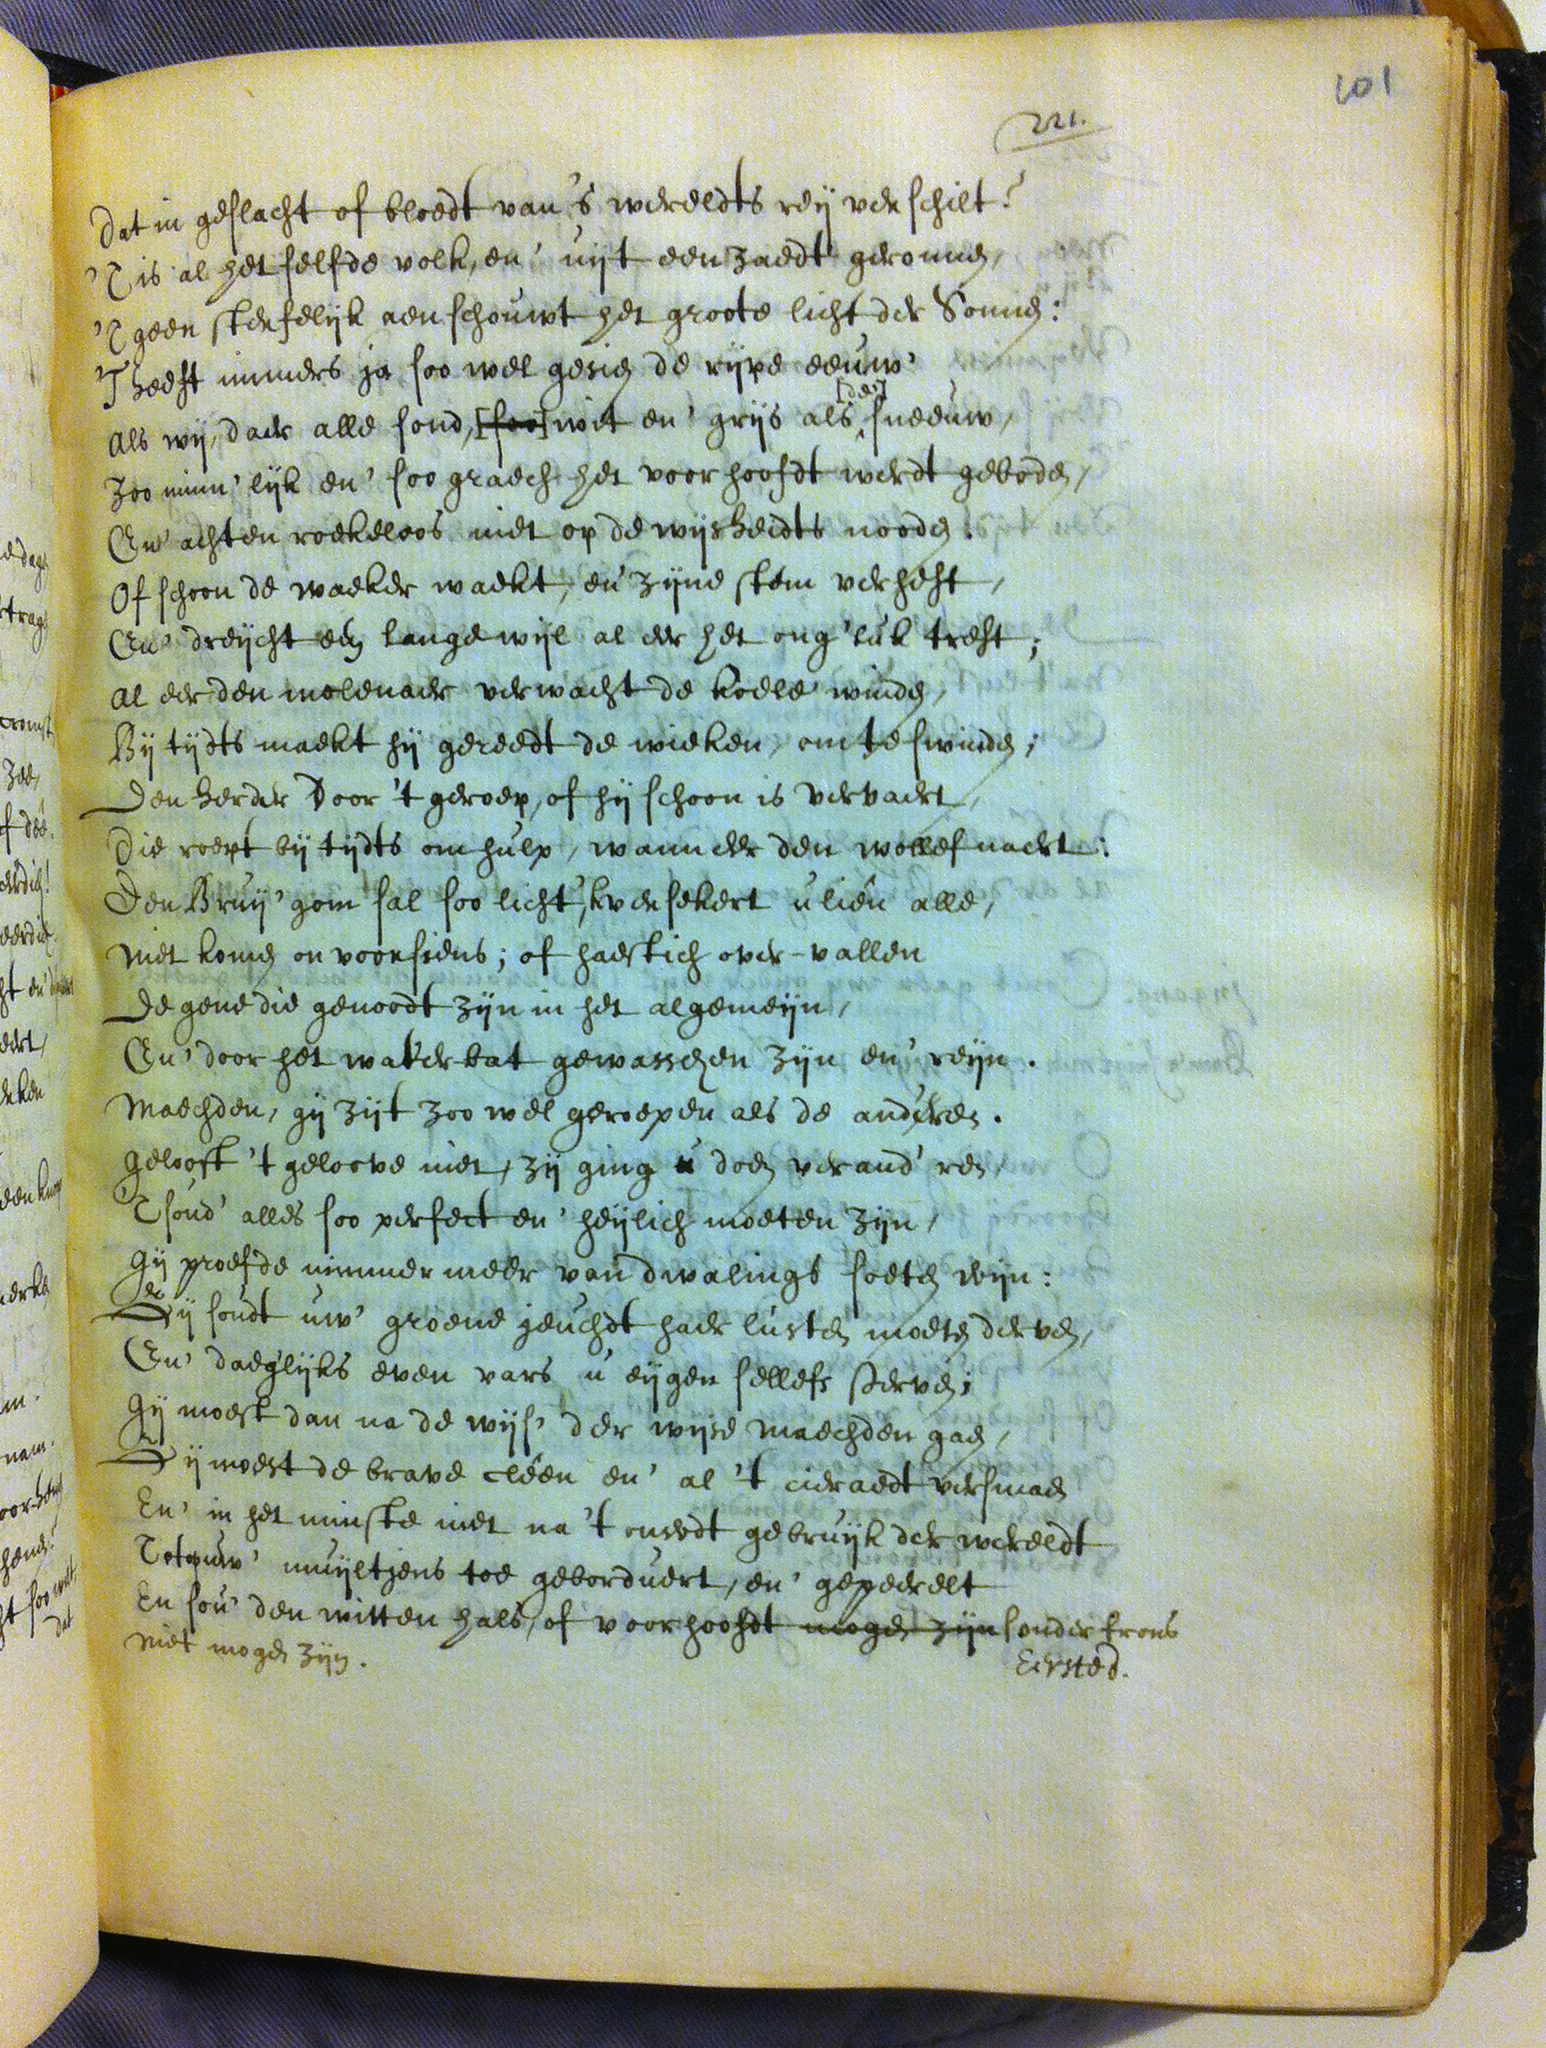 101
221.
Dat in geslacht of bloedt van 's wereldts reij verschilt?
'T is al het selfde volk, en' uijt een zaedt geronnen,
'T geen sterfelijk aenschouwt het groote licht der Sonnen:
'T heeft immers ja soo wel gesien de rijpe eeuw'
Als wij, daer alle sond, [soo] wit en' grijs als [de] sneeuw,
Zoo minn'lijk en' soo graech het voorhoofdt werdt geboden,
En' achten roekeloos niet op de wijsheidts nooden.
Of schoon de waeker waekt, en' zijne stem verheft,
En' dreijcht een lange wijl al eer het ong'luk treft;
Al eer den molenaer verwacht de koele winden,
Bij tijdts maekt hij gereedt de wieken, om te swinden;
Den herder door 't geroep, of hij schoon is vervaert,
Die roept bij tijdts om hulp, wanneer den wollef naert:
Den Bruij'gom sal soo licht, kversekert u liên alle,
Niet komen onvoorsiens; of haestich over-vallen
De gene die genoodt zijn in het algemeijn,
En' door het waterbat gewasschen zijn en' reijn.
Maechden, gij zijt zoo wel geroepen als de anderen.
Gelooft 't geloove niet, zij ging u doen verand'ren,
'T soud' alles soo perfect en' heijlich moeten zijn,
Gij proefde nimmermeer van dwalings soeten wijn:
Gij soudt uw' groene jeuchdt haer lusten moeten derven,
En' daeglijks even vars u eijgen sellefs sterven;
Gij moest dan na de wijs' der wijse Maechden gaen,
Gij moest de brave cléen en' al 't cieraedt versmaen
En' in het minste niet na 't onsedt gebruijk der wereldt
Tot uw' muijltjens toe geborduert, en' gepeerelt
En sou' den witten hals, of voorhoofdt mogen zijn sonder frons
niet mogen zijn.
Eersted.